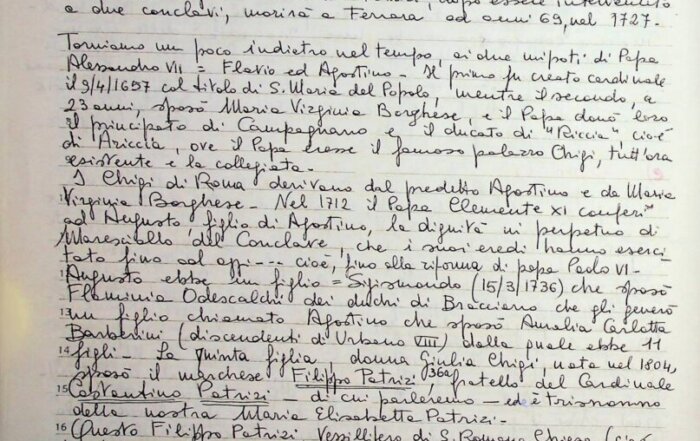 a due conclavi, morirà a Ferrara ad anni 69, nel 1727.
Torniamo un poco indietro nel tempo, ai due nipoti di Papa
Alessandro VII = Flavio ed Agostino - Il primo fu creato cardinale
il 9/4/1657 col titolo di S. Maria del Popolo, mentre il secondo, a
23 anni, sposò Maria Virginia Borghese, e il Papa donò loro
il principato di Campagnano e il ducato di "Riccia", cioè
di Ariccia, ove il Papa eresse il famoso palazzo Chigi, tutt'ora
esistente e la collegiata.
I Chigi di Roma derivano dal predetto Agostino e da Maria
Virginia Borghese - Nel 1712 il Papa Clemente XI conferì
ad Augusto figlio di Agostino, la dignità in perpetuo di
Maresciallo del Conclave, che i suoi eredi hanno eserci
tato fino ad oggi --- cioè, fino alla riforma di papa Paolo VI -
Augusto ebbe un figlio = Sigismondo (15/3/1736) che sposò
Flaminia Odescalchi dei duchi di Bracciano che gli generò
13 un figlio chiamato Agostino che sposò Amalia Carlotta
Barberini (discendenti di Urbano VIII) dalla quale ebbe 11
14 figli - La quinta figlia donna Giulia Chigi, nata nel 1804,
sposò il marchese Filippo Patrizi, fratello del Cardinale
15 Costantino Patrizi - di cui parleremo - ed è trisnonno
della nostra Maria Elisabetta Patrizi -
16 Questo Filippo Patrizi Vessillifero di S. Romana Chiesa (cioè